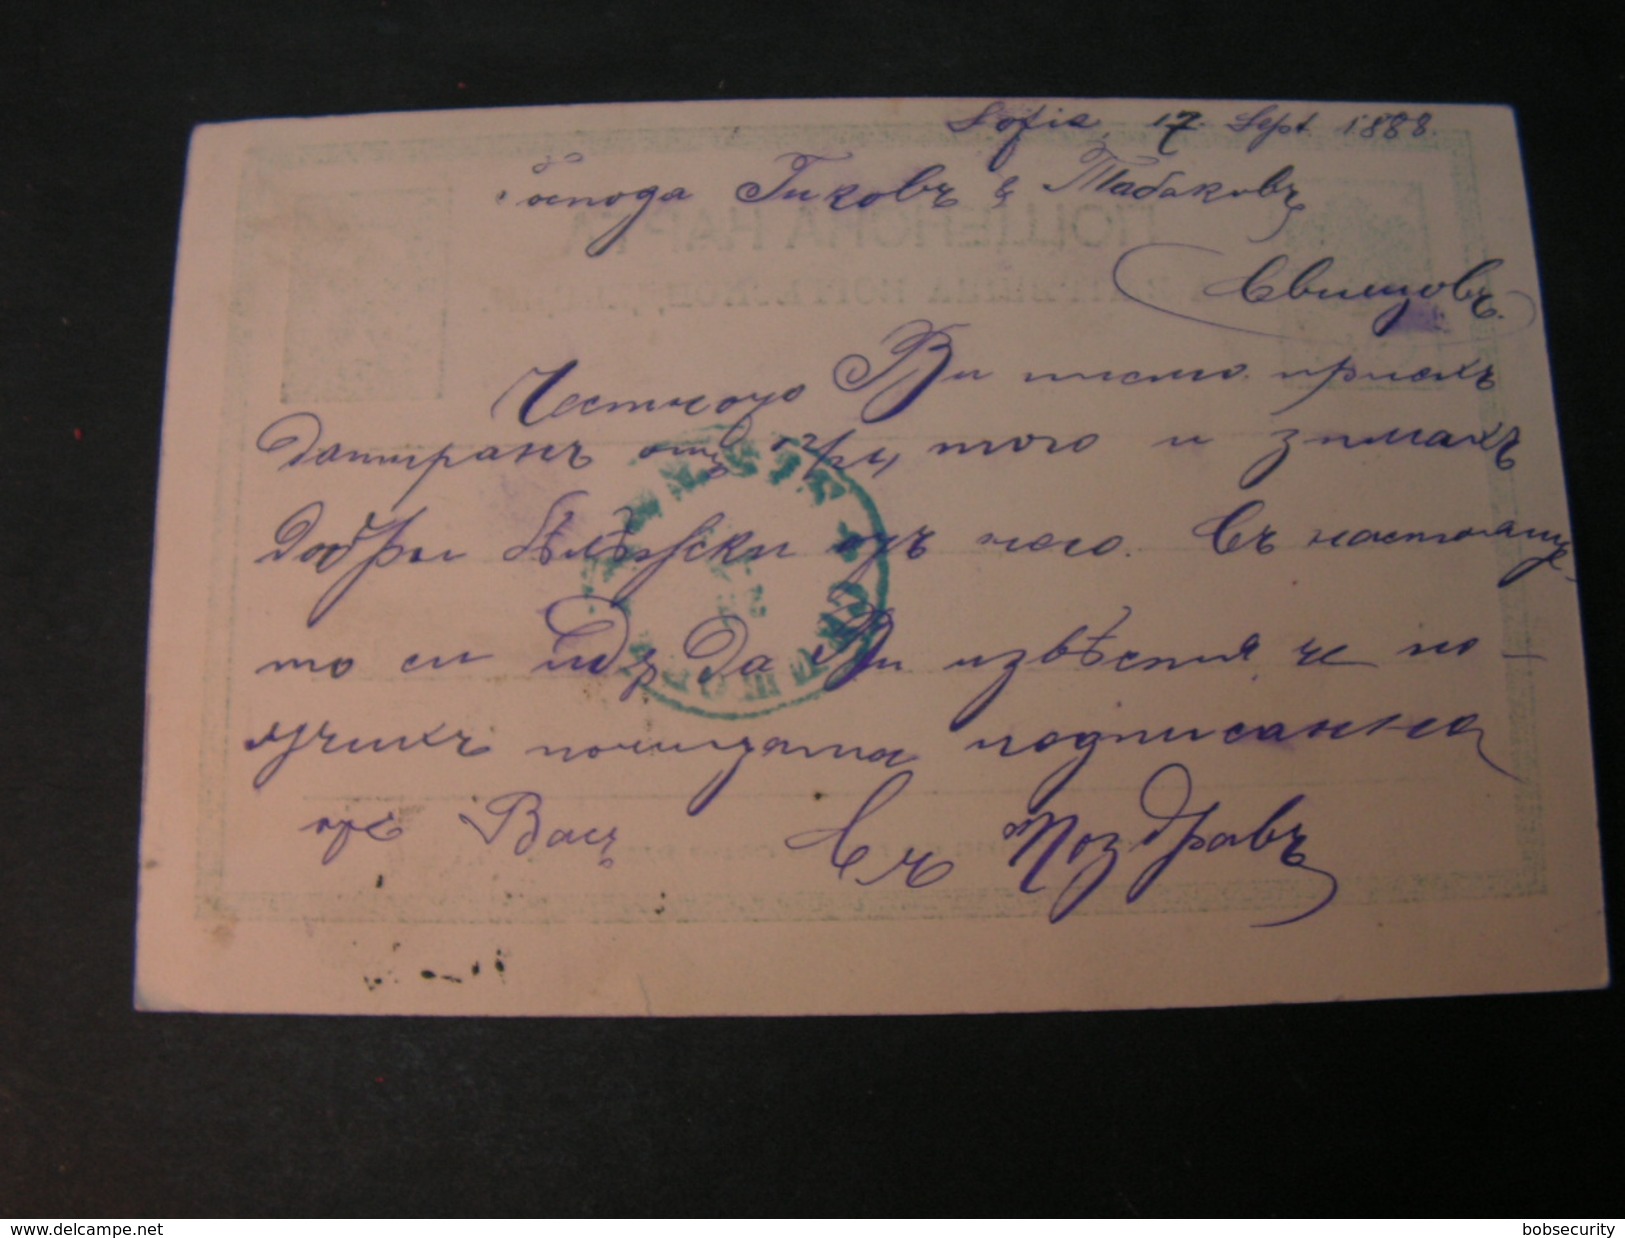 Sofia, 17. Sept 1888.
Господа Гиковъ & Табаковъ
Свищовъ.
Честното Ви писмо приехъ
датиранъ отъ того и зимахъ
добры бѣлѣжски изъ него. Съ настояще-
то си идѫ да Ви извѣстия, че по-
лучихъ полицата подписанна
при Васъ Съ Поздравъ
www.delcampe.net
bobsecurity